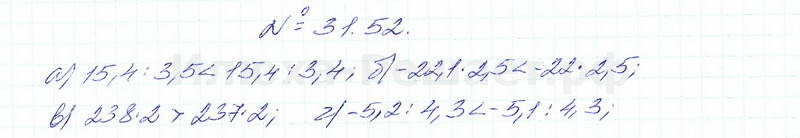 № 31.52.
а) 15,4 : 3,5 < 15,4 : 3,4; б) -22,1 · 2,5 < -22 · 2,5;
в) 238 · 2 > 237 · 2; г) -5,2 : 4,3 < -5,1 : 4,3;